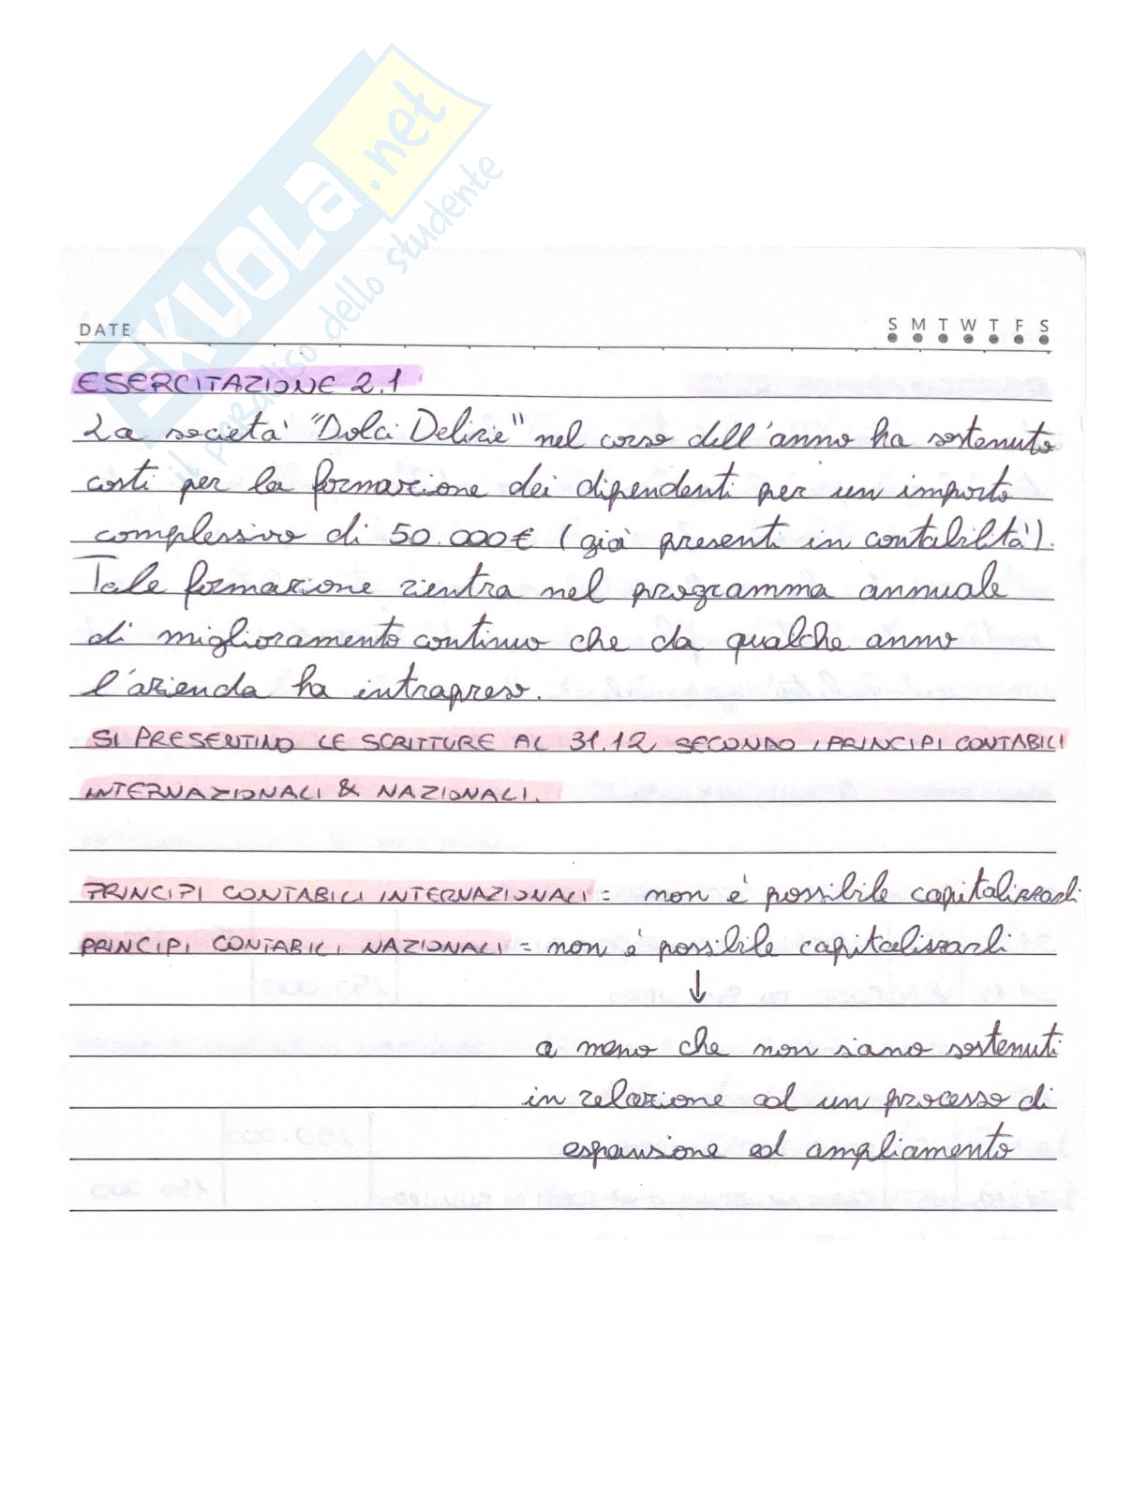 SKUOLA.net
il paradiso dello studente
DATE
S M T W T F S
ESERCITAZIONE 2.1
La società "Dolci Delizie" nel corso dell'anno ha sostenuto
costi per la formazione dei dipendenti per un importo
complessivo di 50.000€ (già presenti in contabilità).
Tale formazione rientra nel programma annuale
di miglioramento continuo che da qualche anno
l'azienda ha intrapreso.
SI PRESENTINO LE SCRITTURE AL 31.12 SECONDO I PRINCIPI CONTABILI
INTERNAZIONALI & NAZIONALI.
PRINCIPI CONTABILI INTERNAZIONALI = non è possibile capitalizzarli
PRINCIPI CONTABILI NAZIONALI = non è possibile capitalizzarli
↓
a meno che non siano sostenuti
in relazione ad un processo di
espansione ed ampliamento